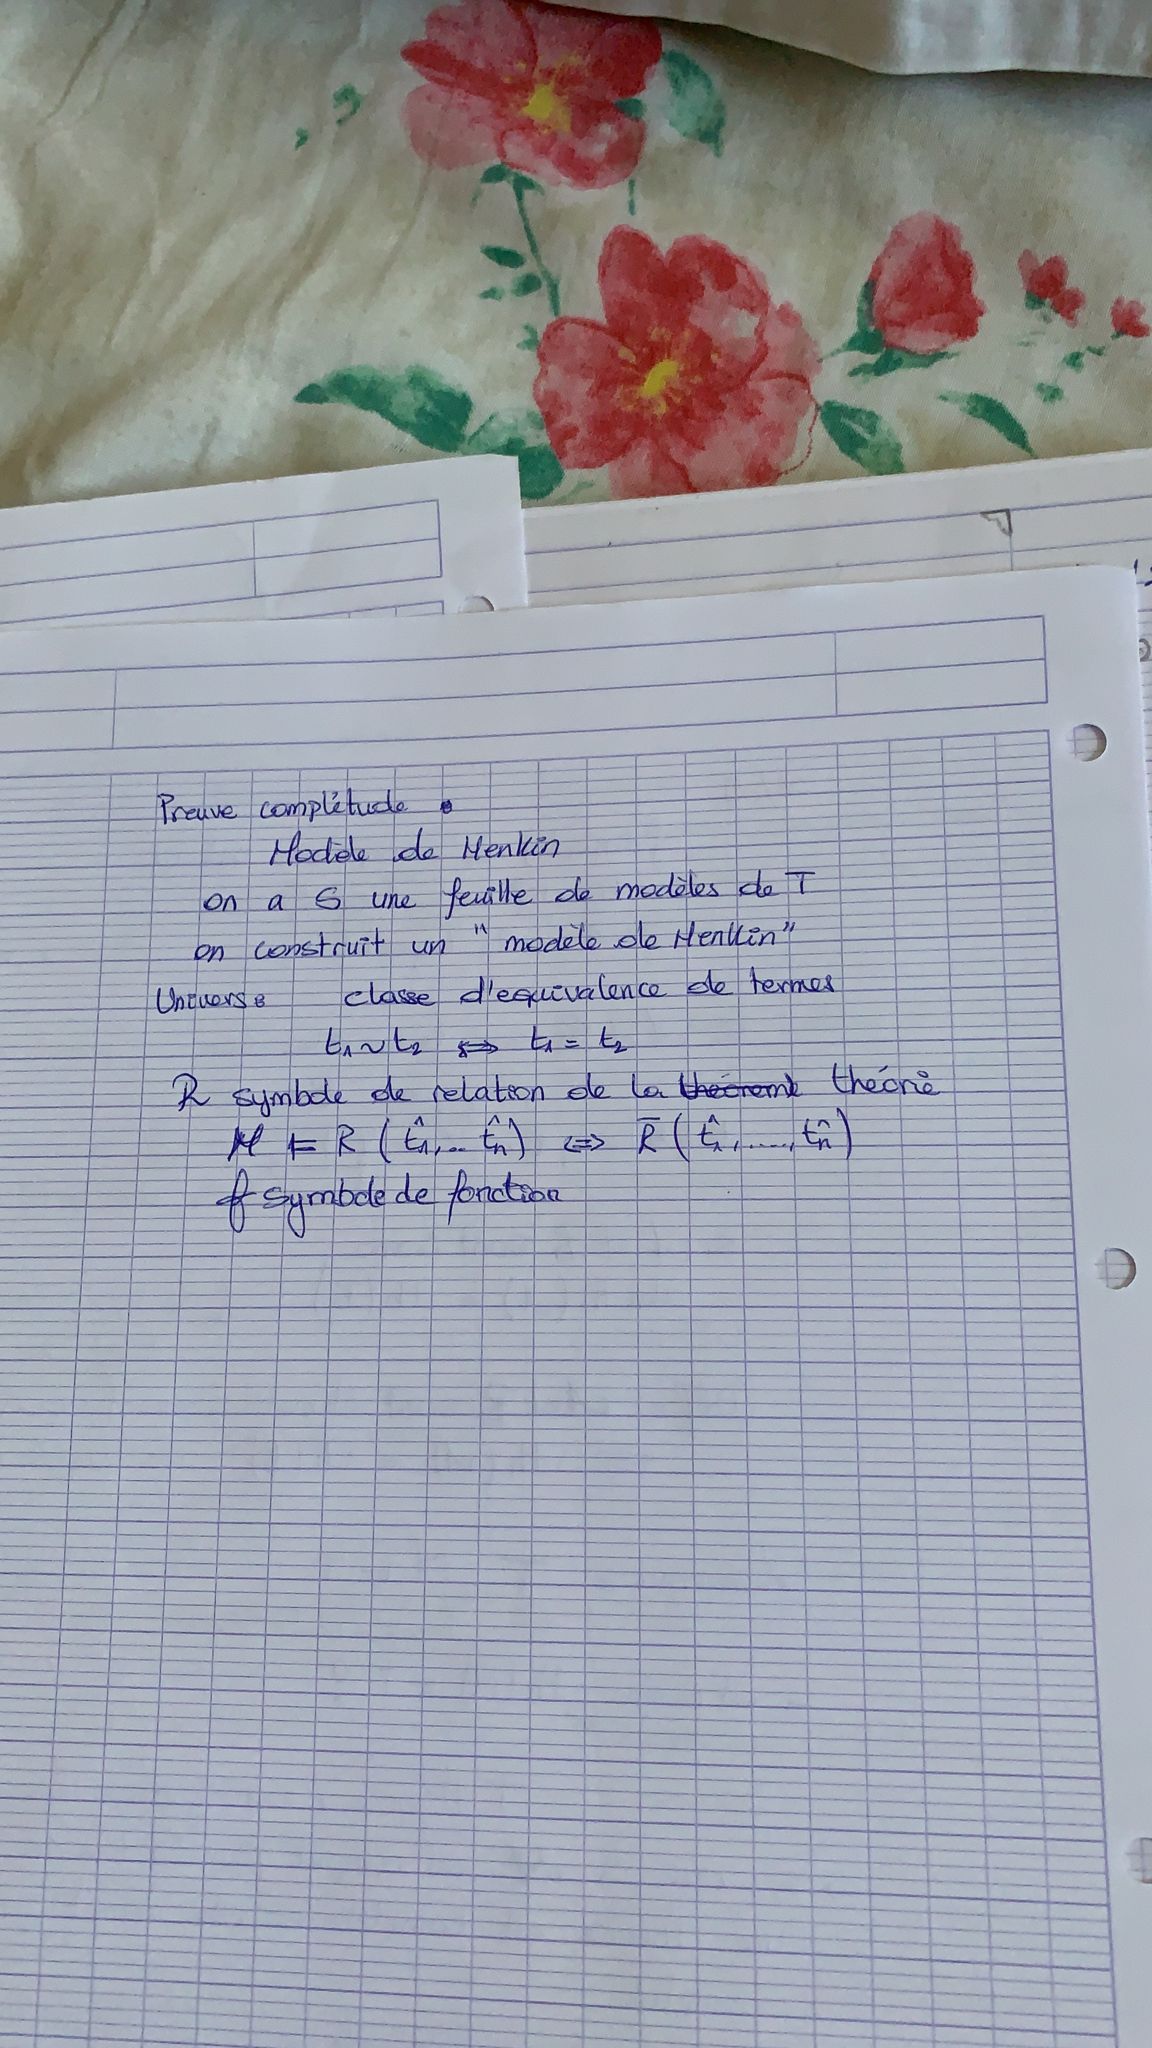 Preuve complétude :
Modèle de Henkin
on a S une feuille de modèles de T
on construit un "modèle de Henkin"
Univers : classe d'equivalence de termes
t₁ ~ t₂ ⟺ t₁ = t₂
R symbole de relation de la theoreme théorie
M ⊨ R (t̂₁,.. t̂n) ⟺ R̄ (t̂₁, ...., t̂n)
f symbole de fonction